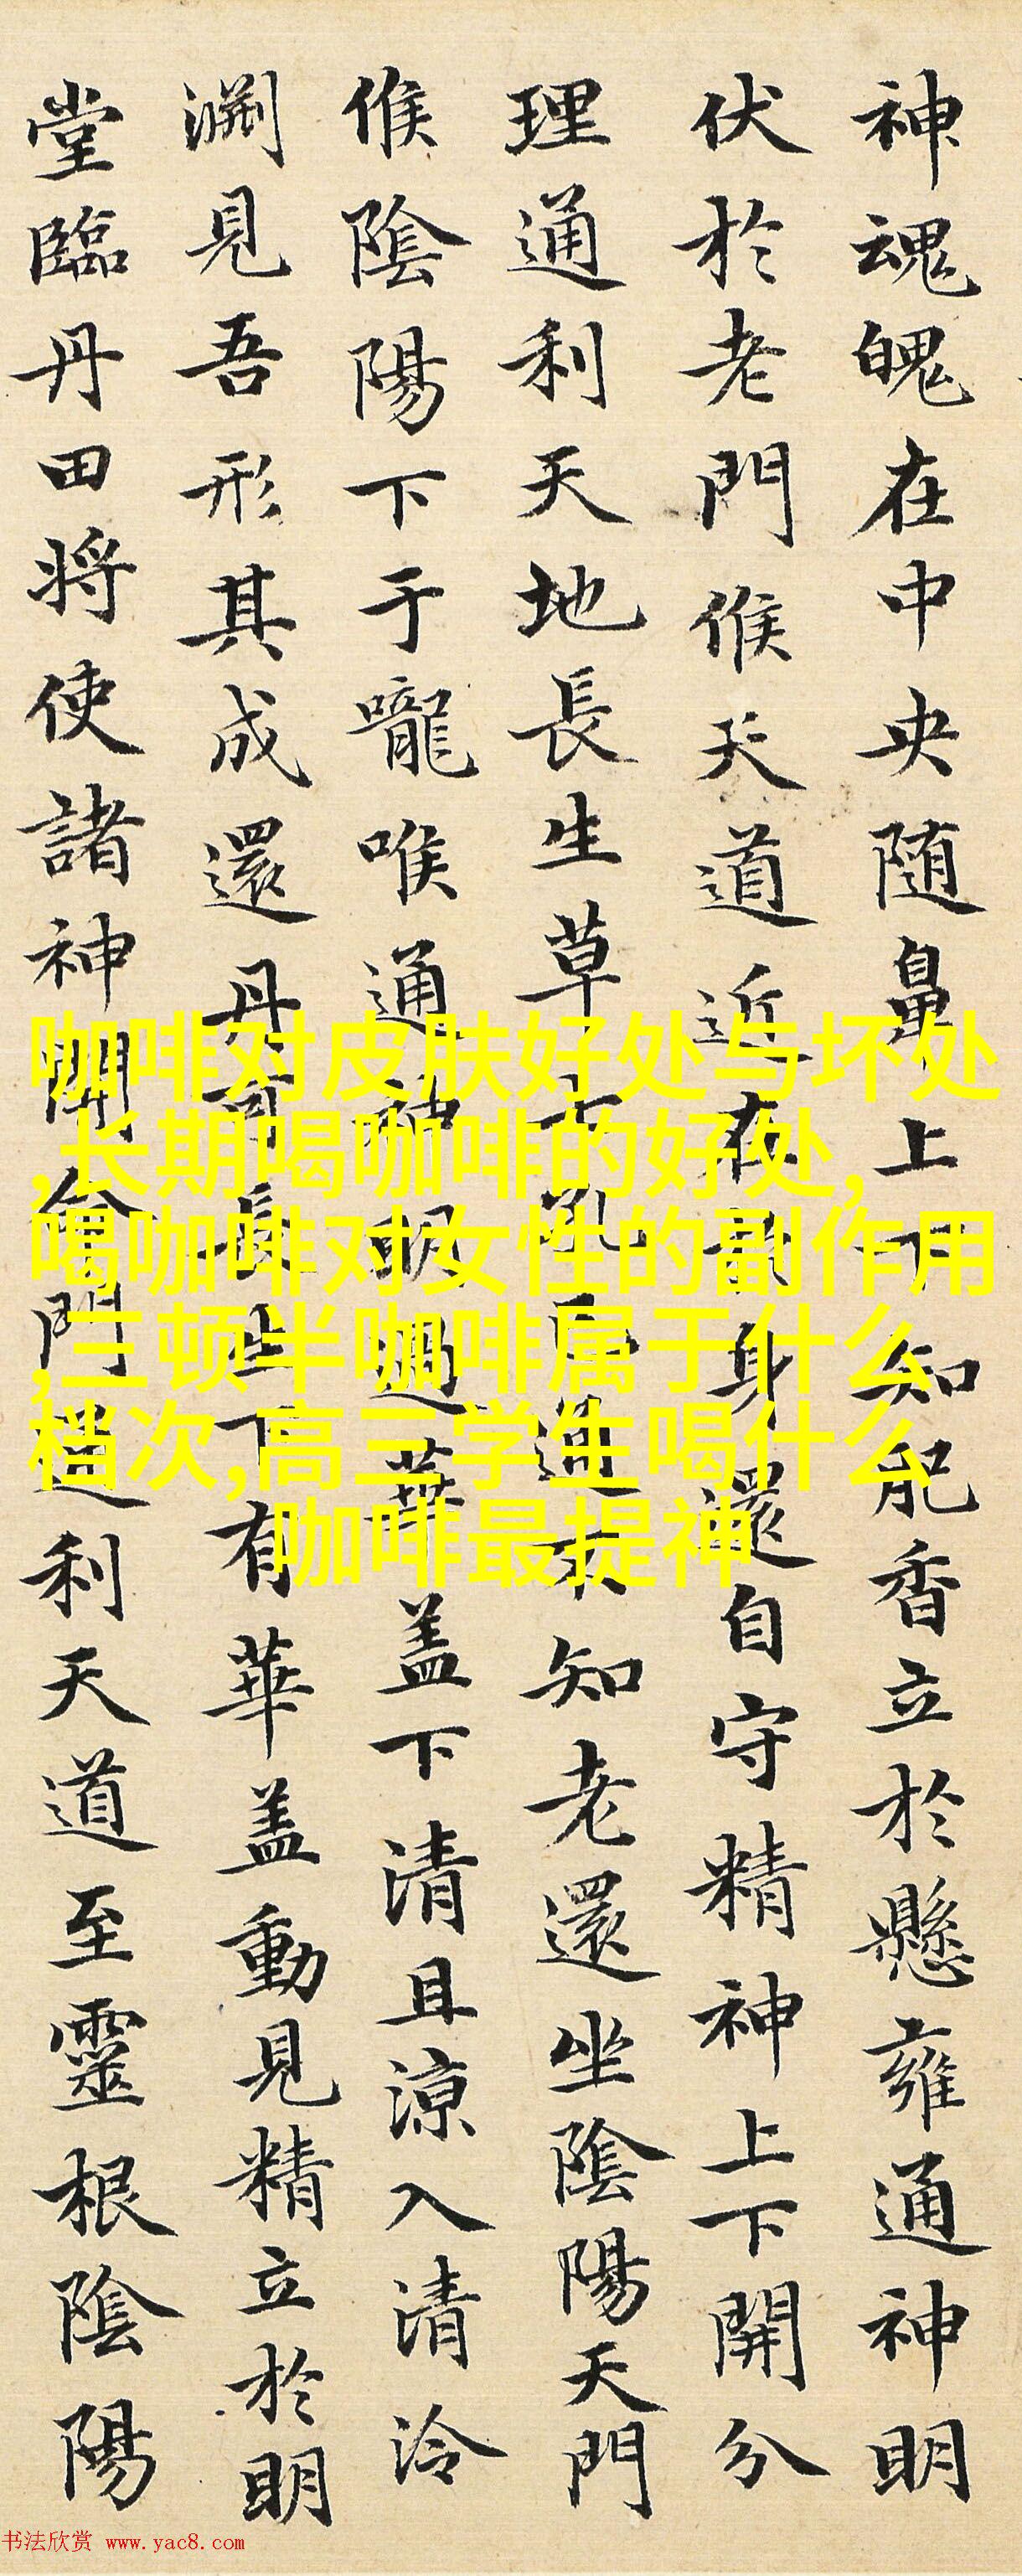 神魂魄在中央随鼻上下知肥香立於懸雍通神明
伏於老門候天道近在於身還自守精神上下開分
理通利天地長生草七孔已通不知老還坐陰陽天門
候陰陽下于嚨喉通神明過華盖下清且涼入清泠
渊見吾形其成還丹可長生下有華盖動見精立於明
堂臨丹田将使諸神開命門通利天道至靈根陰陽
咖啡对皮肤好处与坏处
,长期喝咖啡的好处,
喝咖啡对女性的副作用
,三顿半咖啡属于什么
档次,高三学生喝什么
咖啡最提神
书法欣赏 www.yac8.com